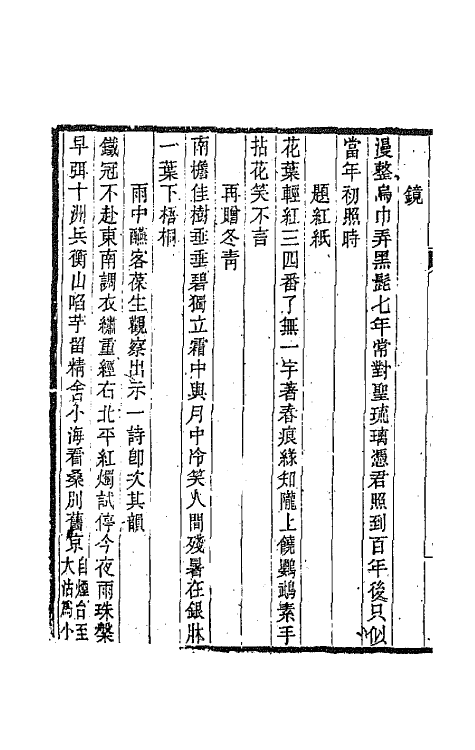 鏡
漫整烏巾弄黑髭七年常對聖琉璃憑君照到百年後只似
當年初照時
題紅紙
花葉輕紅三四番了無一字著春痕緣知隴上饒鸚鵡素手
拈花笑不言
再贈冬青
南檐佳樹垂垂碧獨立霜中與月中冷笑人間殘暑在銀牀
一葉下梧桐
雨中醼客葆生觀察出示一詩卽次其韻
鐵冠不赴東南調衣繡重經右北平紅燭試停今夜雨珠槃
早弭十洲兵衡山啗芋留精舍小海看桑別舊京自煙台至
太沽爲小